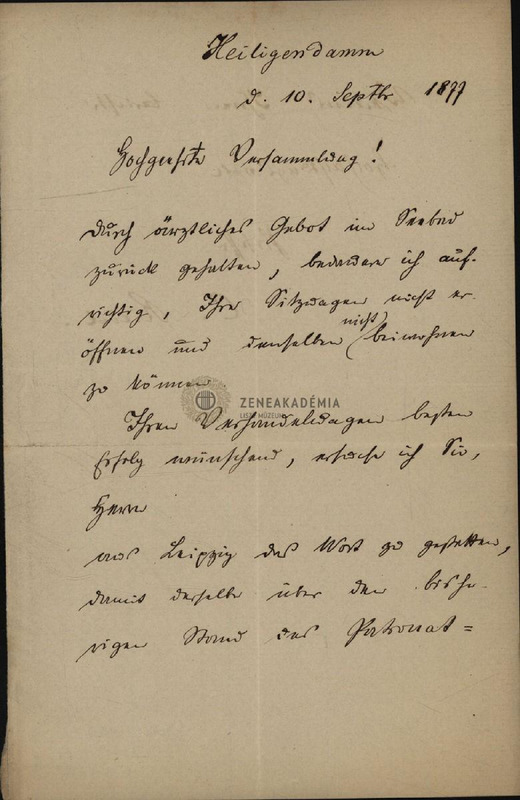 Heiligendamm
d. 10. Septbr 1877
Hochgeehrte Versammlung!
Durch ärztliches Gebot im Seebad
zurück gehalten, bedauere ich auf-
richtig, Ihre Sitzungen nicht er-
öffnen und denselben nicht beiwohnen
zu können.
ZENEAKADÉMIA
LISZT MÚZEUM
Ihren Verhandlungen besten
Erfolg wünschend, ersuche ich Sie,
Herrn
aus Leipzig das Wort zu gestatten,
damit derselbe über den bishe-
rigen Stand des Patronat=